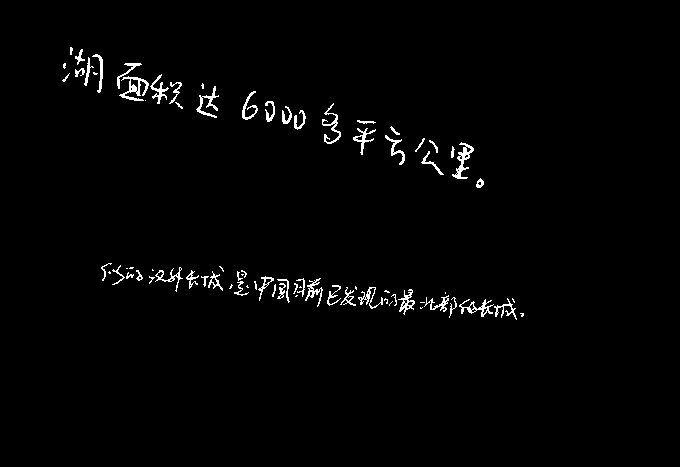 湖面积达6000多平方公里。
的汉外长城是中国目前已发现的最北部的长城。